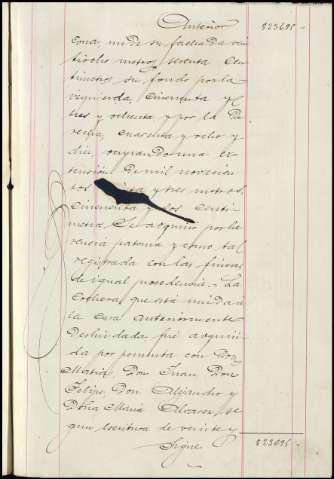 Anterior 825695
cona, mide su fachada vein
tiocho metros, sesenta cen
timetros, su fondo por la
izquierda, cincuenta y
tres y ochenta y por la De
recha, cuarenta y ocho y
diez ocupando una ex
tension de mil novecien
tos y tres metros,
cincuenta y dos centi
metros. Se adquirio por he
rencia paterna y como tal
registrada con las fincas
de igual procedencia. - La
cochera que está unida a
la casa anteriormente
deslindada fué adquiri
da por permuta con Don
Matias, Don Juan, Don
Felipe, Don Alejandro y
Doña Maria Alvarez, se
gun escritura de veinte y
Sigue 825695